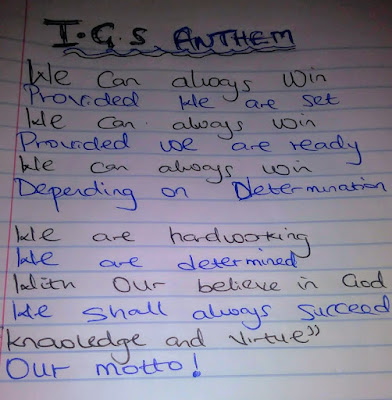 I.G.S ANTHEM
We can always win
Provided We are set
We can always win
Provided we are ready
We can always win
Depending on Determination
We are hardworking
We are determined
With Our believe in God
We shall always succeed
Knowledge and Virtue”
Our motto!